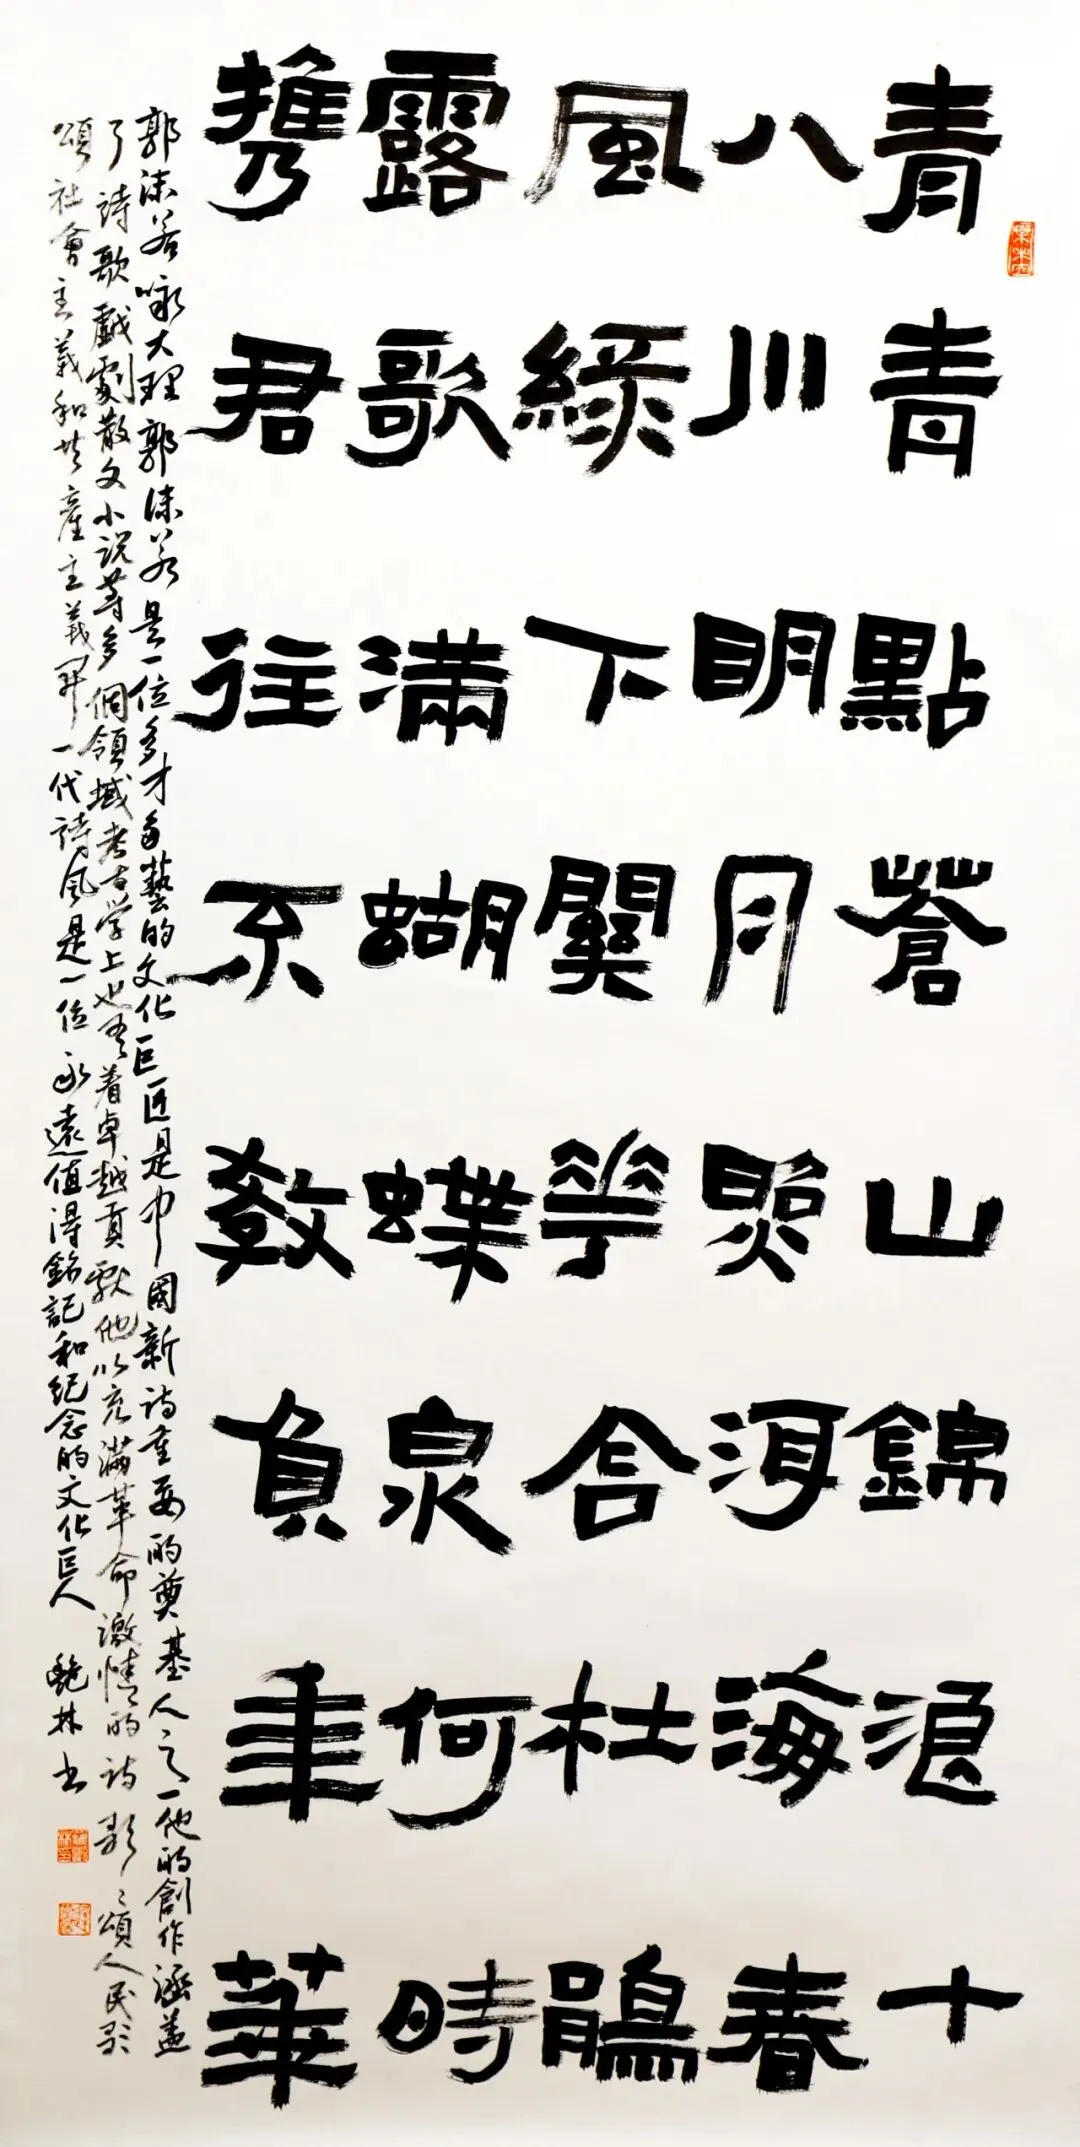 青青點蒼山錦浪十
八川明月照洱海春
風綠下關華合杜鵑
露歌滿蝴蝶泉何時
携君往不教負年華
郭沫若咏大理郭沫若是一位多才多藝的文化巨匠是中國新詩重要的奠基人之一他的創作涵蓋
了詩歌戲劇散文小説等多個領域考古学上也有着卓越貢獻他以充滿革命激情的詩歌〻頌人民歌
頌社會主義和共產主義開一代詩風是一位永遠值得銘記和紀念的文化巨人 林书